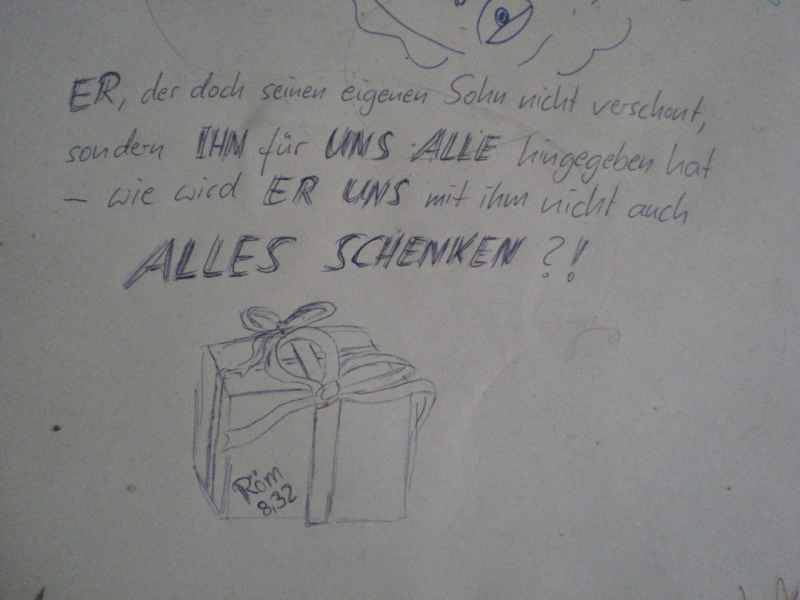 ER, der doch seinen eigenen Sohn nicht verschont,
sondern IHN für UNS ALLE hingegeben hat
– wie wird ER UNS mit ihm nicht auch
ALLES SCHENKEN ?!
Röm
8,32